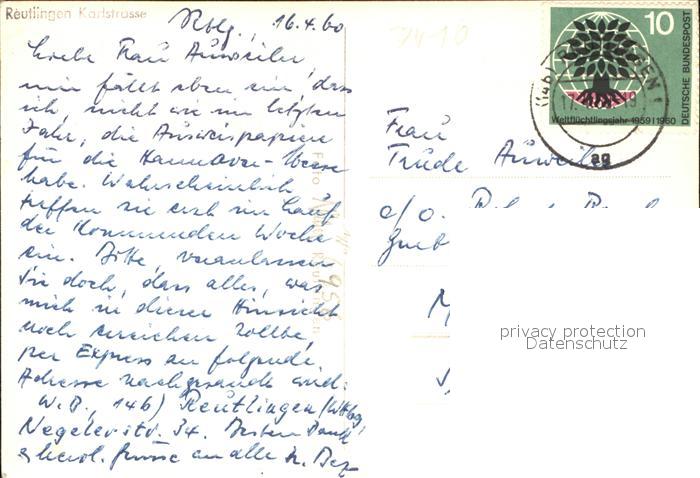 Reutlingen Karlstrasse
Rtlg., 16.4.60
Liebe Frau Auweiler,
mir fällt eben ein, dass
ich, nicht wie im letzten
Jahr, die Ausweispapiere
für die Hannover-Messe
habe. Wahrscheinlich
treffen sie erst im Lauf
der kommenden Woche
ein. Bitte, veranlassen
Sie doch, dass alles, was
mich in dieser Hinsicht
noch erreichen sollte,
per Express an folgende
Adresse nachgesandt wird:
W.B., 14b) Reutlingen/Wttbg,
Negelerstr. 34. Besten Dank
& herzl. Grüsse an alle
Frau
Trude Auweiler
c/o.
10
DEUTSCHE BUNDESPOST
Weltflüchtlingsjahr 1959|1960
(14b)
17.
ag
privacy protection
Datenschutz